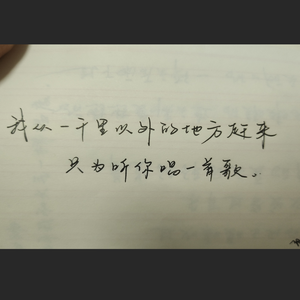 我从一千里以外的地方赶来
只为听你唱一首歌。